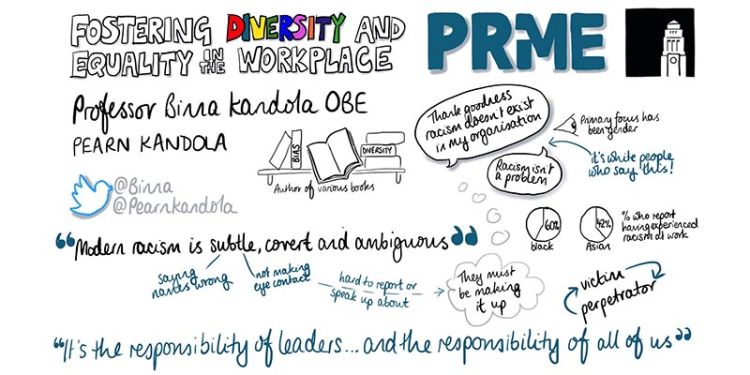 FOSTERING DIVERSITY AND
EQUALITY IN THE WORKPLACE
PRME
Professor Binna Kandola OBE
PEARN KANDOLA
BIAS
DIVERSITY
Author of various books
@Binna
@Pearnkandola
Thank goodness
racism doesn't exist
in my organisation
Primary focus has
been gender
it's white people
who say this!
Racism isn't
a problem
"Modern racism is subtle, covert and ambiguous"
saying
names wrong
not making
eye contact
hard to report or
speak up about
They must
be making
it up
60%
Black
42%
Asian
% who report
having experienced
racism at work
victim
perpetrator
"It's the responsibility of leaders... and the responsibility of all of us"